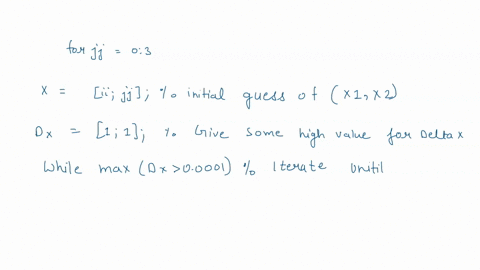 for jj = 0:3
x = [ii; jj]; % initial guess of (x1, x2)
Dx = [1; 1]; % Give some high value for Delta x
While max (Dx > 0.0001) % Iterate unitil